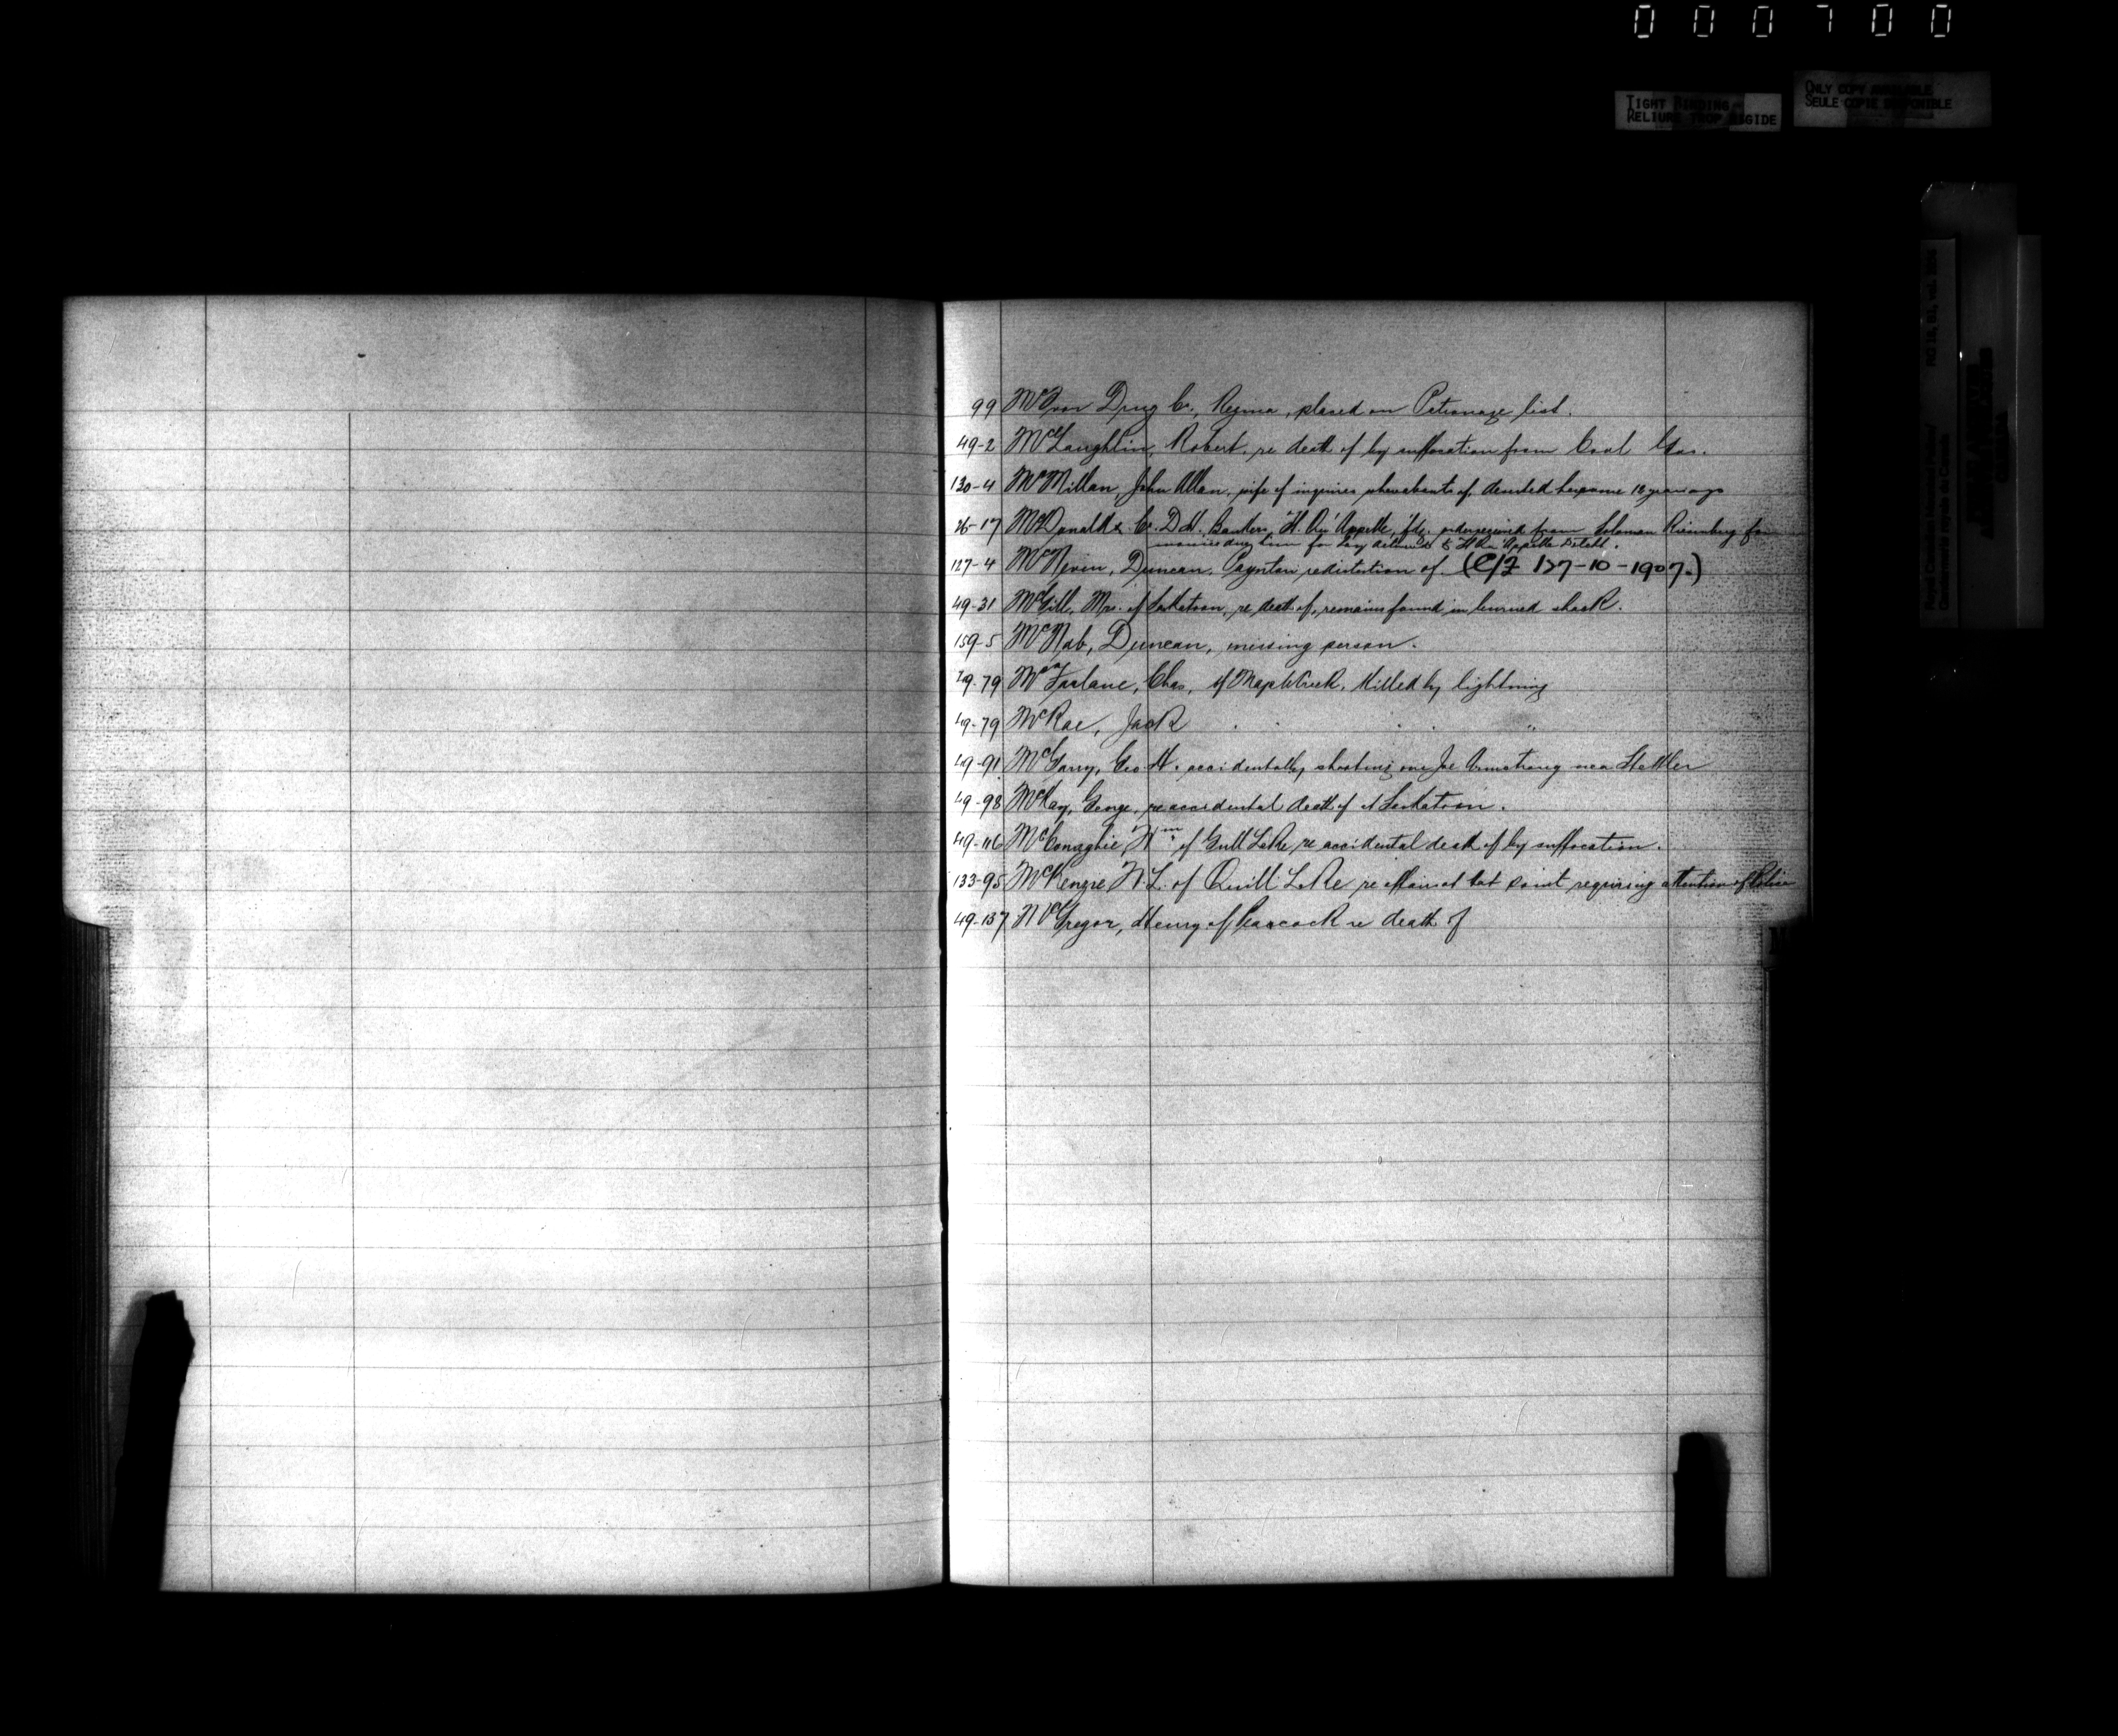 000700
TIGHT BINDING
RELIURE TROP RIGIDE
ONLY COPY AVAILABLE
SEULE COPIE DISPONIBLE
99 Drug Co., Regina, placed on Patronage list.
49-2 McLaughlin, Robert, re death of by suffocation from Coal Gas.
130-4 McMillan, John Allan, wife of inquires whereabouts of, deserted her some years ago
26-17 McDonald & Co. D.H. Bankers, Ft. Qu'Appelle, order received from Soloman for
monies due him for Hay delivered to Ft. Qu'Appelle Detcht.
127-4 McNiven, Duncan, Paynton re destitution of. (C/F 127-10-1907.)
49-31 McGill, Mrs. of Saskatoon, re death of, remains found in burned shack.
159-5 McNab, Duncan, missing person.
49-79 MacFarlane, Chas, of Maple Creek, Killed by lightning
49-79 McRae, Jack " " "
49-91 McGarry, Geo. H. accidentally shooting one Joe Armstrong near Stettler
49-98 McKay, George, re accidental death of at Saskatoon.
49-116 McConaghie, Wm of Gull Lake re accidental death of by suffocation.
133-95 McKenzie W.L. of Quill Lake re affairs at that point requiring attention of Police
49-137 McGregor, Henry of Peacock re death of